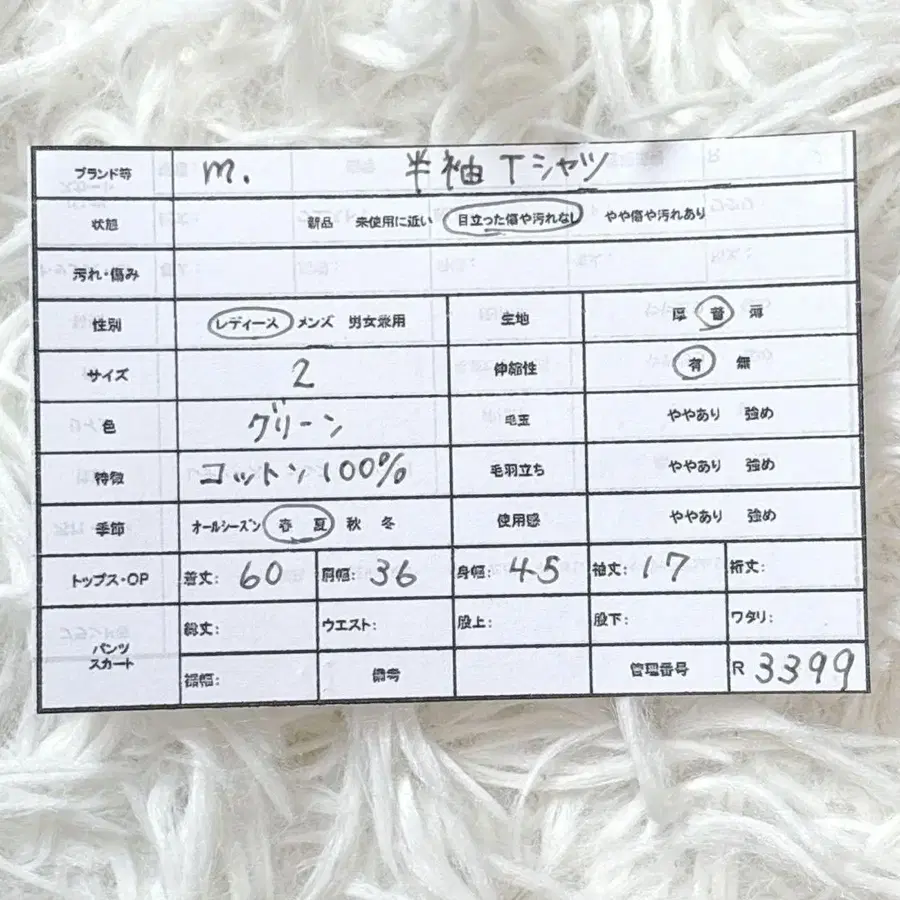 ブランド等 m. 半袖Tシャツ
状態 新品 未使用に近い 目立った傷や汚れなし やや傷や汚れあり
汚れ・傷み
性別 レディース メンズ 男女兼用 生地 厚 普 薄
サイズ 2 伸縮性 有 無
色 グリーン 毛玉 ややあり 強め
特徴 コットン100% 毛羽立ち ややあり 強め
季節 オールシーズン 春 夏 秋 冬 使用感 ややあり 強め
トップス・OP 着丈: 60 肩幅: 36 身幅: 45 袖丈: 17 裄丈:
パンツ
スカート
総丈: ウエスト: 股上: 股下: ワタリ:
裾幅: 備考 管理番号 R 3399